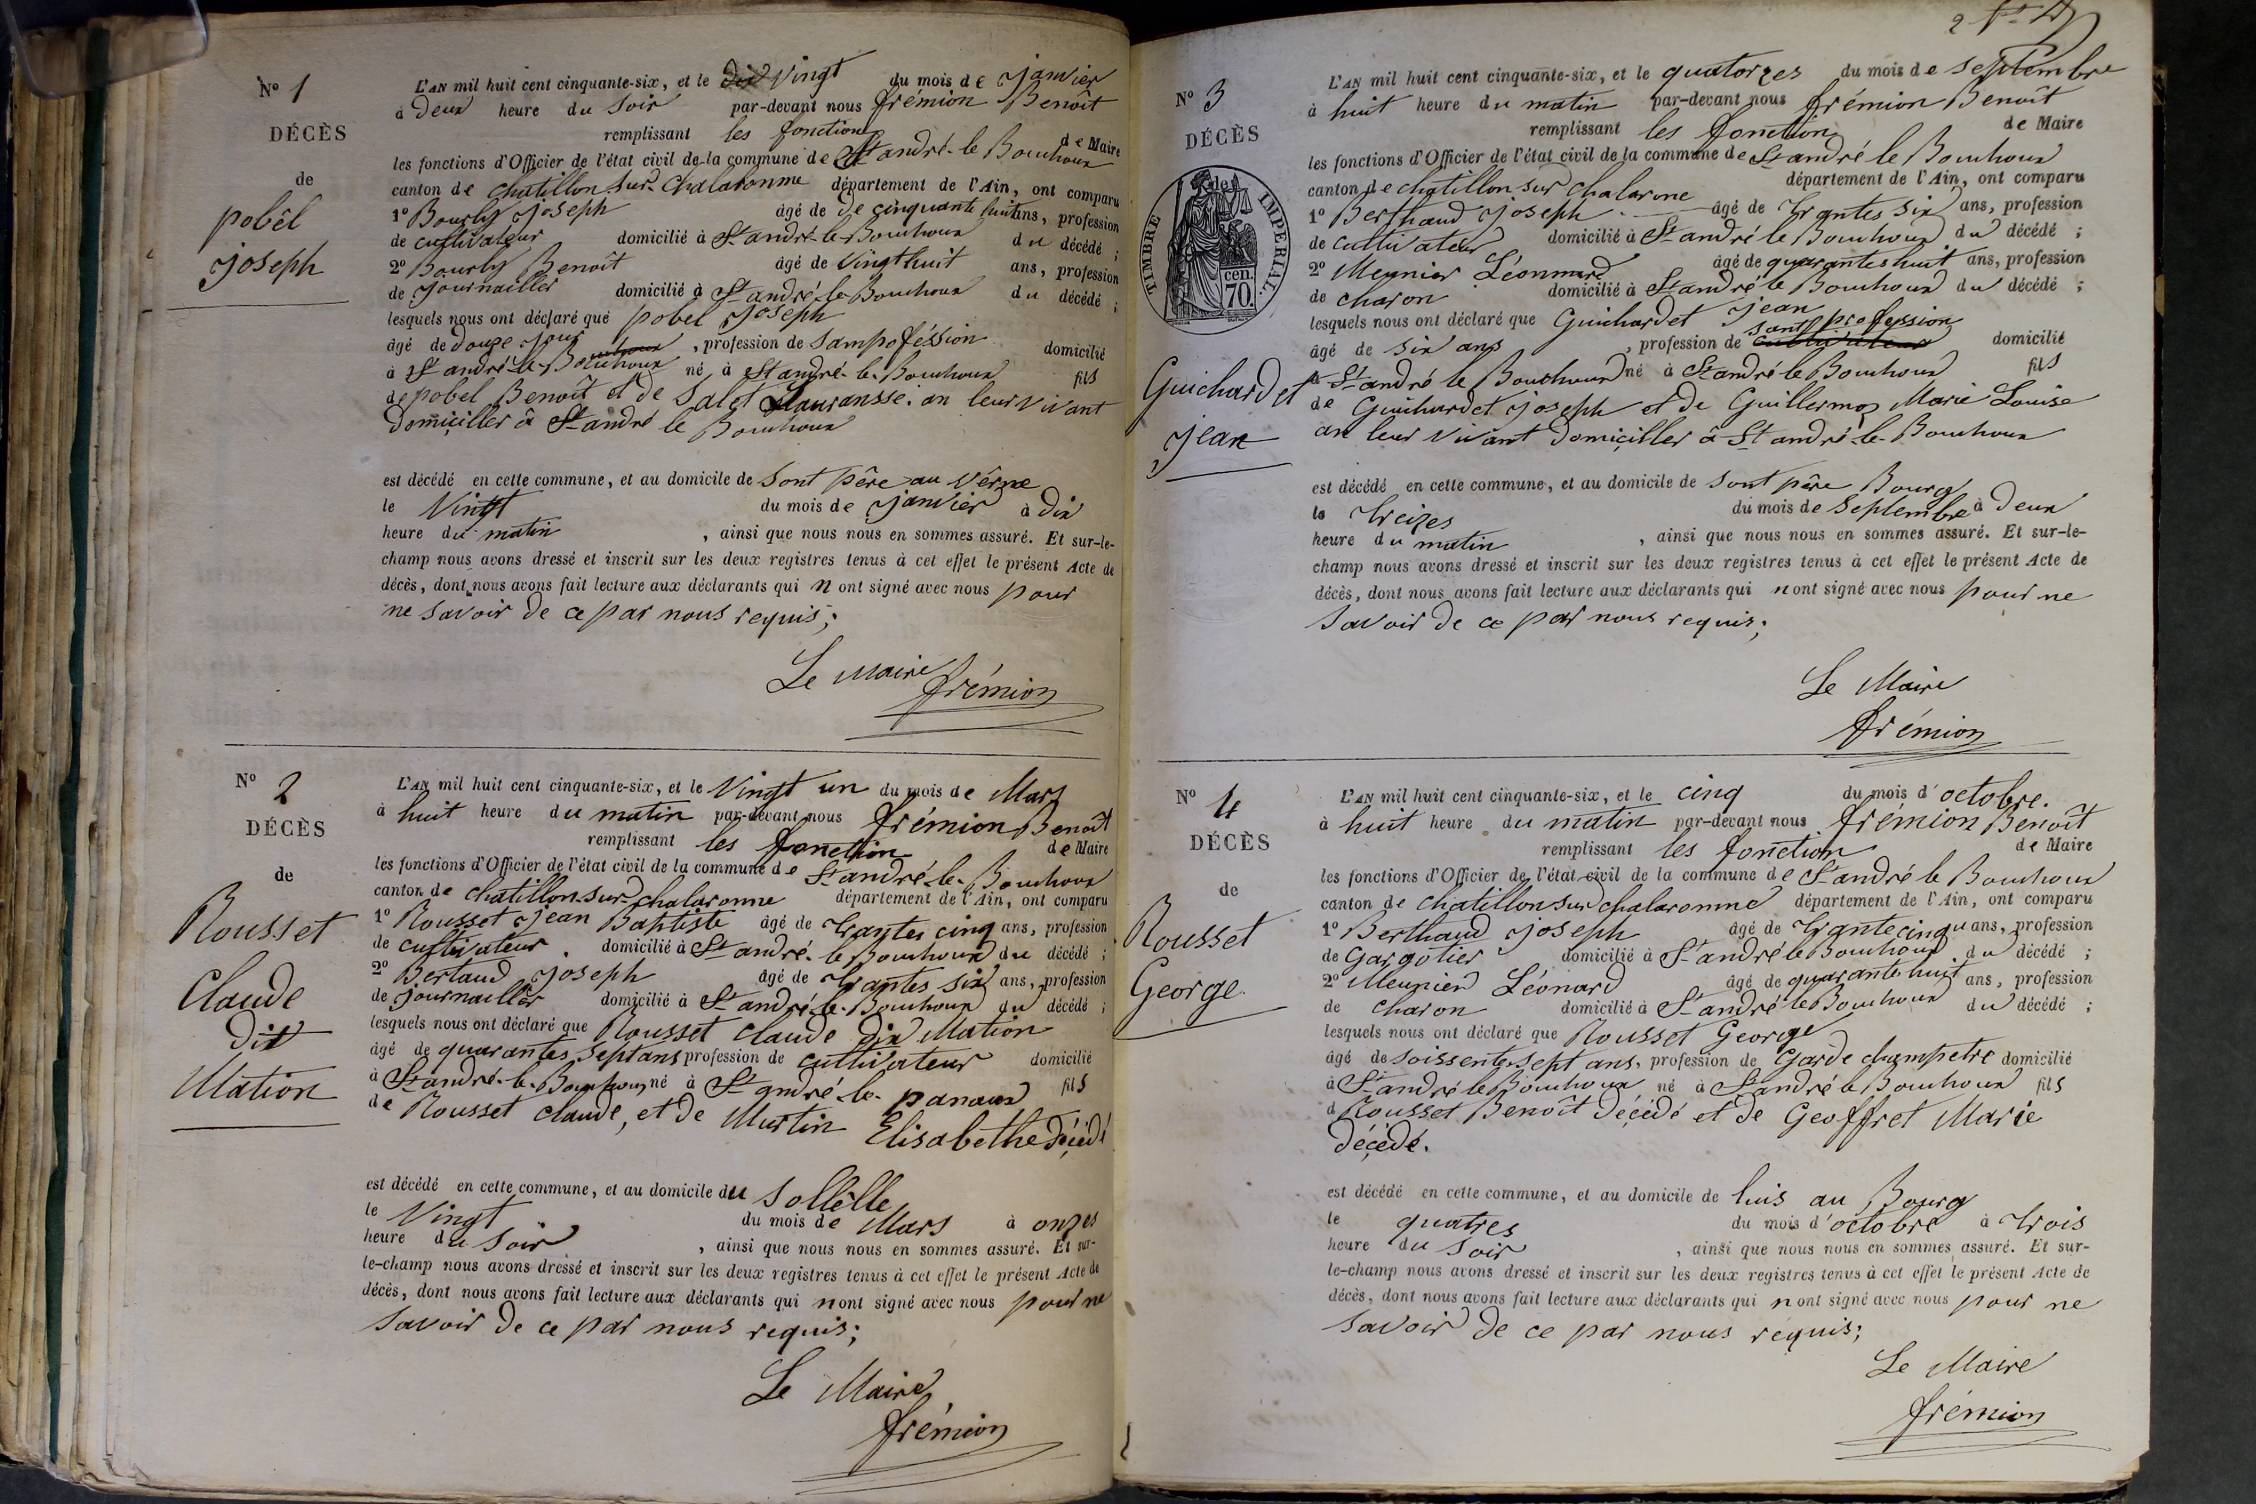 N° 1
DÉCÈS
de
pobêl
joseph
L'AN mil huit cent cinquante-six, et le vingt du mois de janvier
à deux heure du soir par-devant nous frémion Benoît
remplissant les fonction de Maire
les fonctions d'Officier de l'état civil de la commune de St andré-le Bouchoux
canton de chatillon sur chalaronne département de l'Ain, ont comparu
1° Bourly joseph âgé de de cinquante huit ans, profession
de cultivateur domicilié à St andré-le-Bouchoux du décédé ;
2° Bourly Benoît âgé de vingt huit ans, profession
de journailler domicilié à St andré-le-Bouchoux du décédé ;
lesquels nous ont déclaré que pobel joseph
âgé de douze jour , profession de sampoféssion domicilié
à St andré-le-Bouchoux né à St andré-le-Bouchoux fils
de pobel Benoît et de Salet Lauransse. an leur vivant
domiciller â St andré le Bouchoux
est décédé en cette commune, et au domicile de sont pêre au Vêrne
le vingt du mois de janvier à dix
heure du matin , ainsi que nous nous en sommes assuré. Et sur-le-
champ nous avons dressé et inscrit sur les deux registres tenus à cet effet le présent Acte de
décès, dont nous avons fait lecture aux déclarants qui n ont signé avec nous pour
ne savoir de ce par nous requis;
Le Maire
frémion
N° 2
DÉCÈS
de
Rousset
Claude
dit
Mation
L'AN mil huit cent cinquante-six, et le vingt un du mois de Mars
à huit heure du matin par-devant nous frémion Benoît
remplissant les fonction de Maire
les fonctions d'Officier de l'état civil de la commune de St andré-le-Bouchoux
canton de chatillon-sur-chalaronne département de l'Ain, ont comparu
1° Rousset jean Baptiste âgé de trantes cinq ans, profession
de cultivateur domicilié à St andré-le Bouchoux du décédé ;
2° Bertaud joseph âgé de trantes six ans, profession
de journailler domicilié à St andré-le-Bouchoux du décédé ;
lesquels nous ont déclaré que Rousset claude dix Mation
âgé de quarantes septans profession de cultivateur domicilié
à St andré-le-Bouchoux né à St andré-le-panoux fils
de Rousset claude, et de Murtin Elisabethe décédé
est décédé en cette commune, et au domicile du Sollêlle
le vingt du mois de Mars à onzes
heure du soir , ainsi que nous nous en sommes assuré. Et sur-
le-champ nous avons dressé et inscrit sur les deux registres tenus à cet effet le présent Acte de
décès, dont nous avons fait lecture aux déclarants qui n ont signé avec nous pour ne
savoir de ce par nous requis;
Le Maire
frémion
2
N° 3
DÉCÈS
de
TIMBRE IMPERIAL
cen.
70.
Guichardet
jean
L'AN mil huit cent cinquante-six, et le quatorzes du mois de septembre
à huit heure du matin par-devant nous frémion Benoît
remplissant les fonction de Maire
les fonctions d'Officier de l'état civil de la commune de St andré le Bouchoux
canton de chatillon sur chalarone département de l'Ain, ont comparu
1° Berthaud joseph âgé de trantes six ans, profession
de cultivateur domicilié à St andré le Bouchoux du décédé ;
2° Meunier Léonnard âgé de quarantes huit ans, profession
de charon domicilié à St andré le Bouchoux du décédé ;
lesquels nous ont déclaré que Guichardet jean
sant profession
âgé de six ans , profession de cultivateur domicilié
à St andré le Bouchoux né à St andré le Bouchoux fils
de Guichardet joseph et de Guillermoz Marie Louise
an leur vivant domiciller â St andré-le-Bouchoux
est décédé en cette commune, et au domicile de sont pêre Bourg
le treizes du mois de septembre à deux
heure du matin , ainsi que nous nous en sommes assuré. Et sur-le-
champ nous avons dressé et inscrit sur les deux registres tenus à cet effet le présent Acte de
décès, dont nous avons fait lecture aux déclarants qui n ont signé avec nous pour ne
savoir de ce par nous requis;
Le Maire
frémion
N° 4
DÉCÈS
de
Rousset
George
L'AN mil huit cent cinquante-six, et le cinq du mois d'octobre.
à huit heure du matin par-devant nous frémion Benoît
remplissant les fonction de Maire
les fonctions d'Officier de l'état civil de la commune de St andré le Bouchoux
canton de chatillon sur chalaronne département de l'Ain, ont comparu
1° Berthaud joseph âgé de trante cinq ans, profession
de Gargotier domicilié à St andré le Bouchoux du décédé ;
2° Meunier Léonard âgé de quarante huit ans, profession
de charon domicilié à St andré le Bouchoux du décédé ;
lesquels nous ont déclaré que Rousset George
âgé de soissente sept ans, profession de Garde champetre domicilié
à St andré le Bouchoux né à St andré le Bouchoux fils
d Rousset Benoît décédé et de Geoffret Marie
décédé.
est décédé en cette commune, et au domicile de luis au Bourg
le quatres du mois d'octobre à trois
heure du soir , ainsi que nous nous en sommes assuré. Et sur-
le-champ nous avons dressé et inscrit sur les deux registres tenus à cet effet le présent Acte de
décès, dont nous avons fait lecture aux déclarants qui n ont signé avec nous pour ne
savoir de ce par nous requis;
Le Maire
frémion